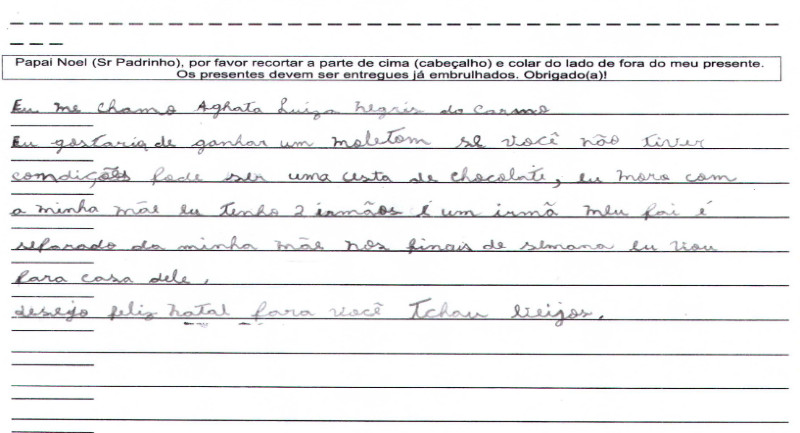 Papai Noel (Sr Padrinho), por favor recortar a parte de cima (cabeçalho) e colar do lado de fora do meu presente.
Os presentes devem ser entregues já embrulhados. Obrigado(a)!
Eu me chamo Aghata Luiza Negris do Carmo
Eu gostaria de ganhar um moletom se você não tiver
comdições pode ser uma cesta de chocolate, eu moro com
a minha mãe eu tenho 2 irmãos é um irmã meu pai é
separado da minha mãe nos finais de semana eu vou
para casa dele,
desejo feliz natal para você Tchau beijos.